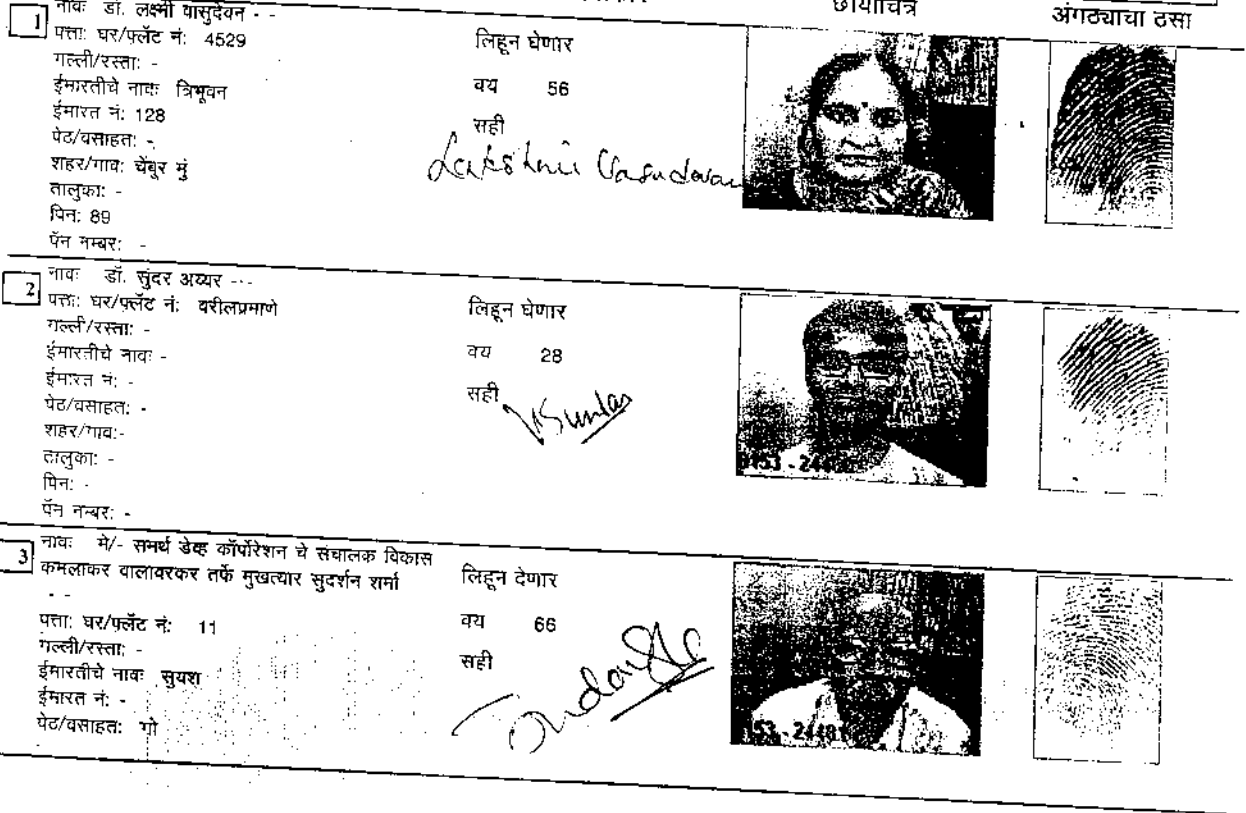 छायाचित्र
अंगठ्याचा ठसा
1
नावः डॉ. लक्ष्मी वासुदेवन - -
पत्ताः घर/फ्लॅट नं: 4529
गल्ली/रस्ताः -
ईमारतीचे नावः त्रिभूवन
ईमारत नं: 128
पेठ/वसाहतः -
शहर/गावः चेंबूर मुं
तालुकाः -
पिनः 89
पॅन नम्बरः -
लिहून घेणार
वय 56
सही
Lakshmi Vasudevan
2
नावः डॉ. सुंदर अय्यर - - -
पत्ताः घर/फ्लॅट नं: वरीलप्रमाणे
गल्ली/रस्ताः -
ईमारतीचे नावः -
ईमारत नं: -
पेठ/वसाहतः -
शहर/गावः-
तालुकाः -
पिनः -
पॅन नम्बरः -
लिहून घेणार
वय 28
सही
VSundar
3
नावः मे/- समर्थ डेव्ह कॉर्पोरेशन चे संचालक विकास
कमलाकर वालावरकर तर्फे मुखत्यार सुदर्शन शर्मा
- -
पत्ताः घर/फ्लॅट नं: 11
गल्ली/रस्ताः -
ईमारतीचे नावः सुयश
ईमारत नं: -
पेठ/वसाहतः गो
लिहून देणार
वय 66
सही